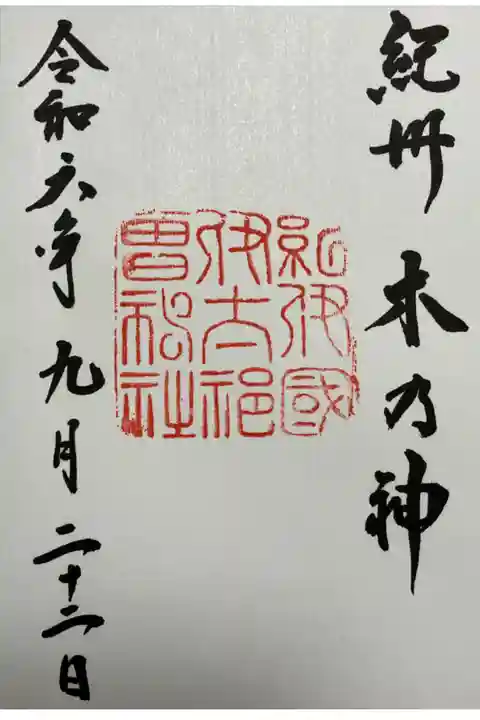 紀州 木乃神
紀伊國
伊太祁
曽神社
令和六年九月二十二日